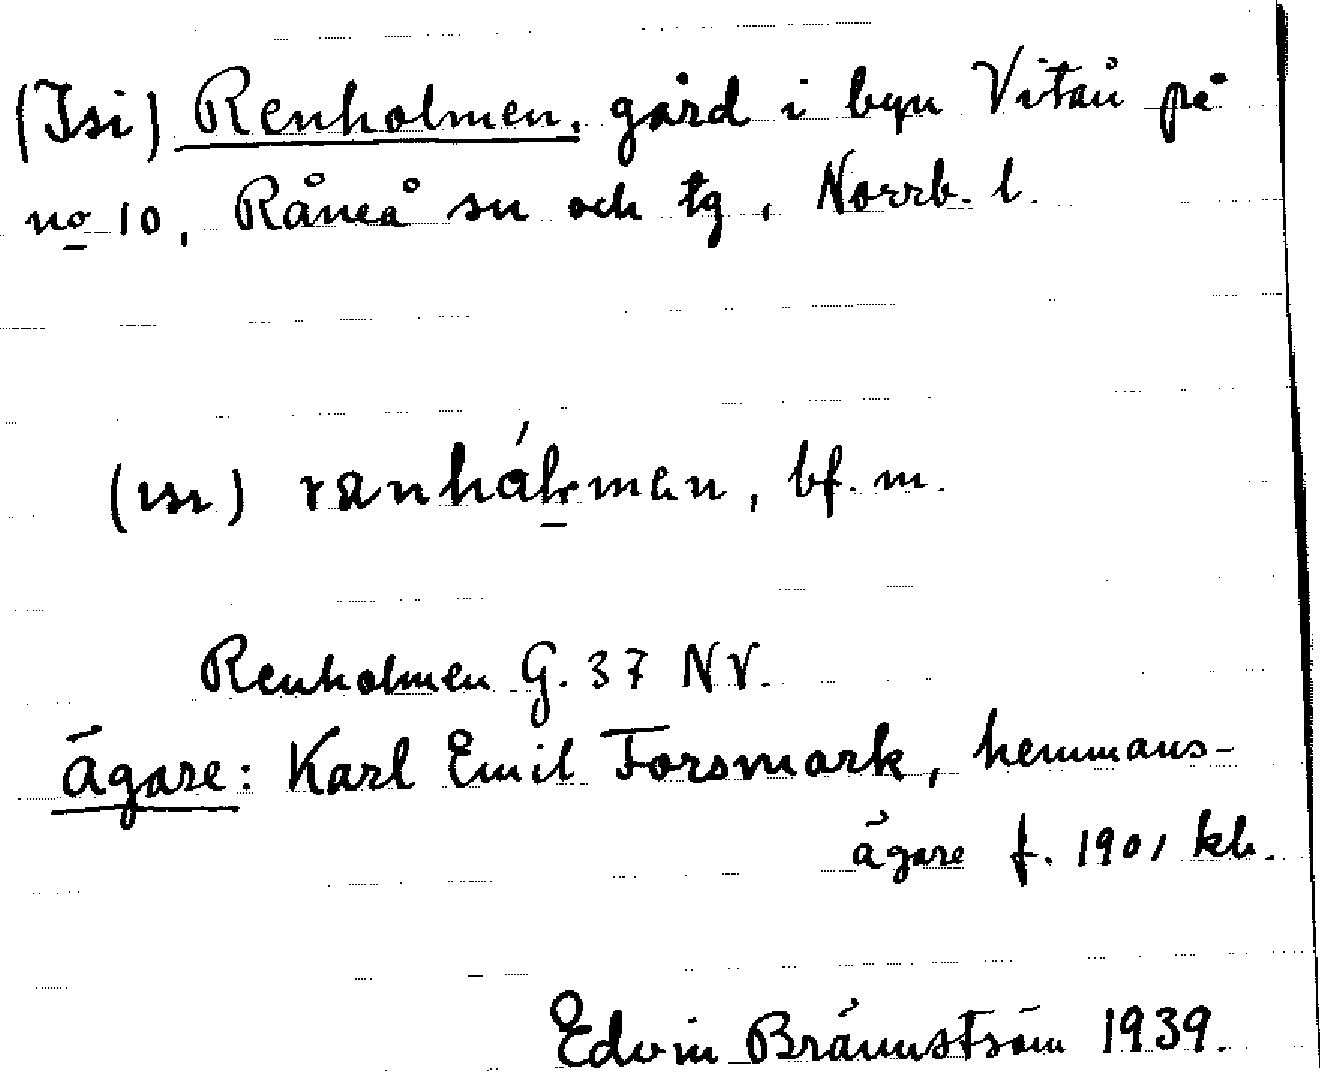 (Isi) Renholmen, gård i byn Vitåu på
no 10, Råneå sn och tg, Norrb. l.
(ısı) ranhálman, bf. m.
Renholmen G. 37 NV.
Ägare: Karl Emil Forsmark, hemmans-
ägare f. 1901 kb.
Edvin Brännström 1939.